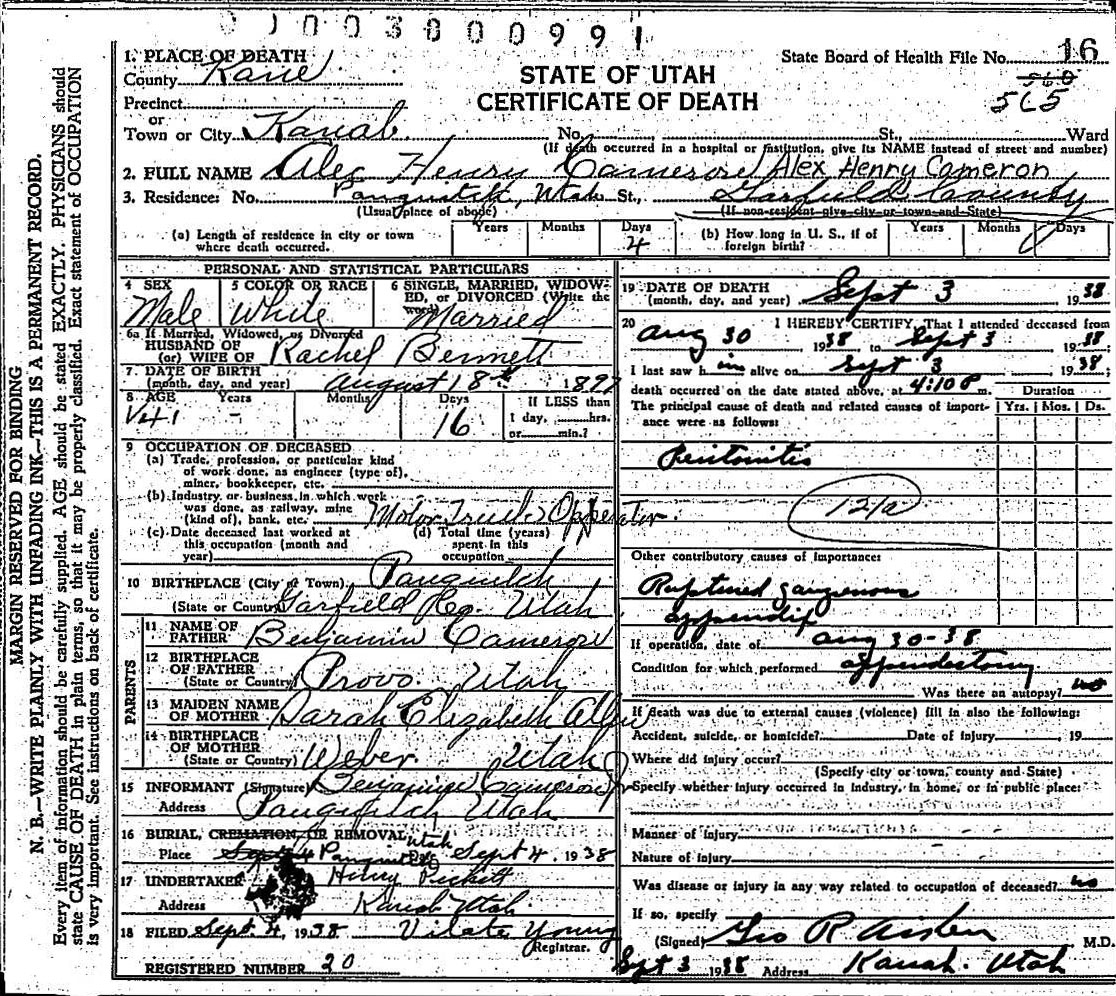 0 J 0 0 3 8 0 0 0 9 9 1
1. PLACE OF DEATH
County Kane
State Board of Health File No. 16
560
565
STATE OF UTAH
CERTIFICATE OF DEATH
Precinct
or
Town or City Kanab No. St., Ward
(If death occurred in a hospital or institution, give its NAME instead of street and number)
2. FULL NAME Alec Henry Cameron Alex Henry Cameron
3. Residence: No. Panguitch, Utah St., Garfield County
(Usual place of abode) (If non-resident give city or town and State)
(a) Length of residence in city or town where death occurred. Years Months Days 4 (b) How long in U. S., if of foreign birth? Years Months Days
PERSONAL AND STATISTICAL PARTICULARS
4 SEX Male 5 COLOR OR RACE White 6 SINGLE, MARRIED, WIDOWED, or DIVORCED (Write the word) Married
6a If Married, Widowed, or Divorced
HUSBAND OF
(or) WIFE OF Rachel Bennett
7. DATE OF BIRTH
(month, day, and year) August 18th 1897
8 AGE Years 41 Months - Days 16 If LESS than
1 day, hrs.
or min.?
9 OCCUPATION OF DECEASED
(a) Trade, profession, or particular kind
of work done, as engineer (type of),
miner, bookkeeper, etc.
(b) Industry or business in which work
was done, as railway, mine
(kind of), bank, etc. Motor Truck Opperator
(c) Date deceased last worked at
this occupation (month and
year)
(d) Total time (years)
spent in this
occupation
10 BIRTHPLACE (City or Town) Panguitch
(State or Country) Garfield Co. Utah
PARENTS
11 NAME OF
FATHER Benjamin Cameron
12 BIRTHPLACE
OF FATHER
(State or Country) Provo Utah
13 MAIDEN NAME
OF MOTHER Sarah Elizabeth Allen
14 BIRTHPLACE
OF MOTHER
(State or Country) Weber Utah
15 INFORMANT (Signature) Benjamin Cameron Jr
Address Panguitch Utah
16 BURIAL, CREMATION, OR REMOVAL, Utah
Place Sept 4 Panguitch Sept 4. 1938
17 UNDERTAKER Henry
Address Kanab Utah
18 FILED Sept. 4, 1938 Vilate Young
Registrar.
REGISTERED NUMBER 20
19 DATE OF DEATH
(month, day, and year) Sept 3 1938
20 I HEREBY CERTIFY, That I attended deceased from
Aug 30 1938 to Sept 3 1938;
I last saw him alive on Sept 3 1938;
death occurred on the date stated above, at 4:10 P m.
The principal cause of death and related causes of importance were as follows: Duration Yrs. Mos. Ds.
Peritonitis
121a
Other contributory causes of importance:
Ruptured gangrenous
appendix
If operation, date of Aug 30-38
Condition for which performed appendectomy
Was there an autopsy? no
If death was due to external causes (violence) fill in also the following:
Accident, suicide, or homicide? Date of injury 19
Where did injury occur?
(Specify city or town, county and State)
Specify whether injury occurred in industry, in home, or in public place:
Manner of injury
Nature of injury
Was disease or injury in any way related to occupation of deceased? no
If so, specify
(Signed) Geo R Aiken M.D.
Sept 3 1938 Address Kanab. Utah
MARGIN RESERVED FOR BINDING
N. B.—WRITE PLAINLY WITH UNFADING INK—THIS IS A PERMANENT RECORD.
Every item of information should be carefully supplied. AGE should be stated EXACTLY. PHYSICIANS should
state CAUSE OF DEATH in plain terms, so that it may be properly classified. Exact statement of OCCUPATION
is very important. See instructions on back of certificate.